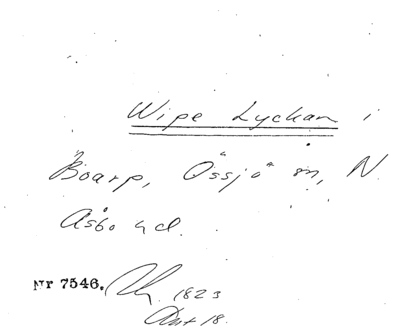 Wipe Lyckan i
Boarp, Össjö sn, N
Åsbo hd.
Nr 7546. 1823
18.